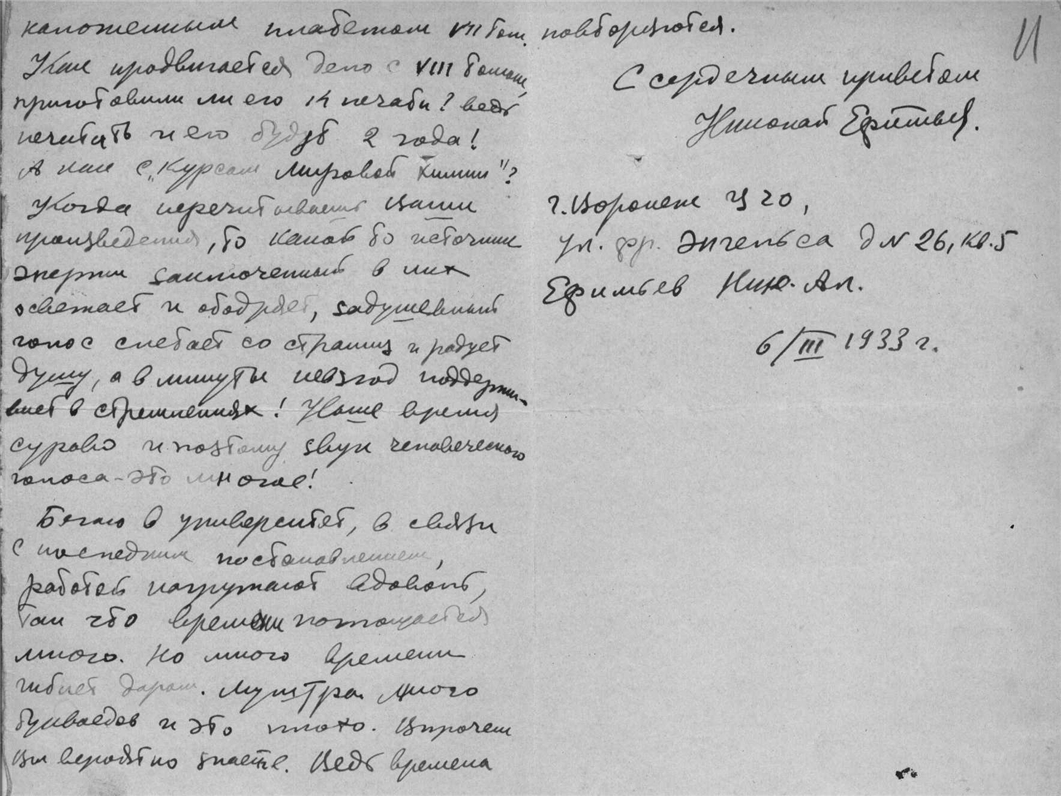 наложенным платежом VII том.
Как продвигается дело с VIII томом,
приготовили ли его к печати? ведь
печатать и его будут 2 года!
А как с „Курсом Мировой Химии"?
Когда перечитываешь Ваши
произведения, то какой то источник
энергии заключенный в них
освежает и ободряет, задушевный
голос слетает со страниц и радует
душу, а в минуты невзгод поддержи-
вает в стремлениях! Наше время
сурово и поэтому звук человеческого
голоса - это многое!
Бегаю в университет, в связи
с последним постановлением,
работой нагружают вдоволь,
так что времени поглощается
много. Но много времени
гибнет даром. много
буквоедов и это плохо. Впрочем
Вы вероятно знаете. Ведь времена
повторяются.
С сердечным приветом
Николай Ефимьев.
г. Воронеж Ц ЧО,
ул. фр. Энгельса д № 26, кв. 5
Ефимьев Ник. Ал.
6/III 1933 г.
11